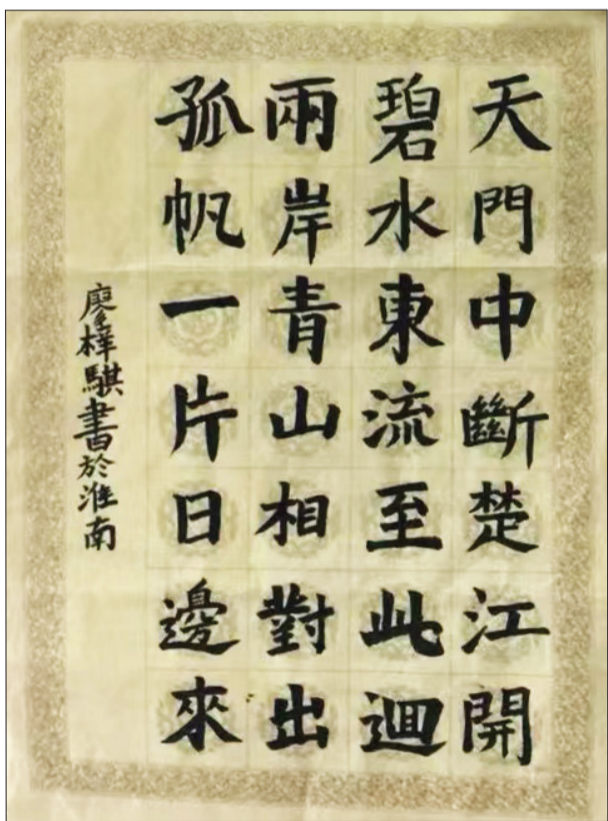 天門中斷楚江開
碧水東流至此迴
兩岸青山相對出
孤帆一片日邊來
廖梓騏書於淮南